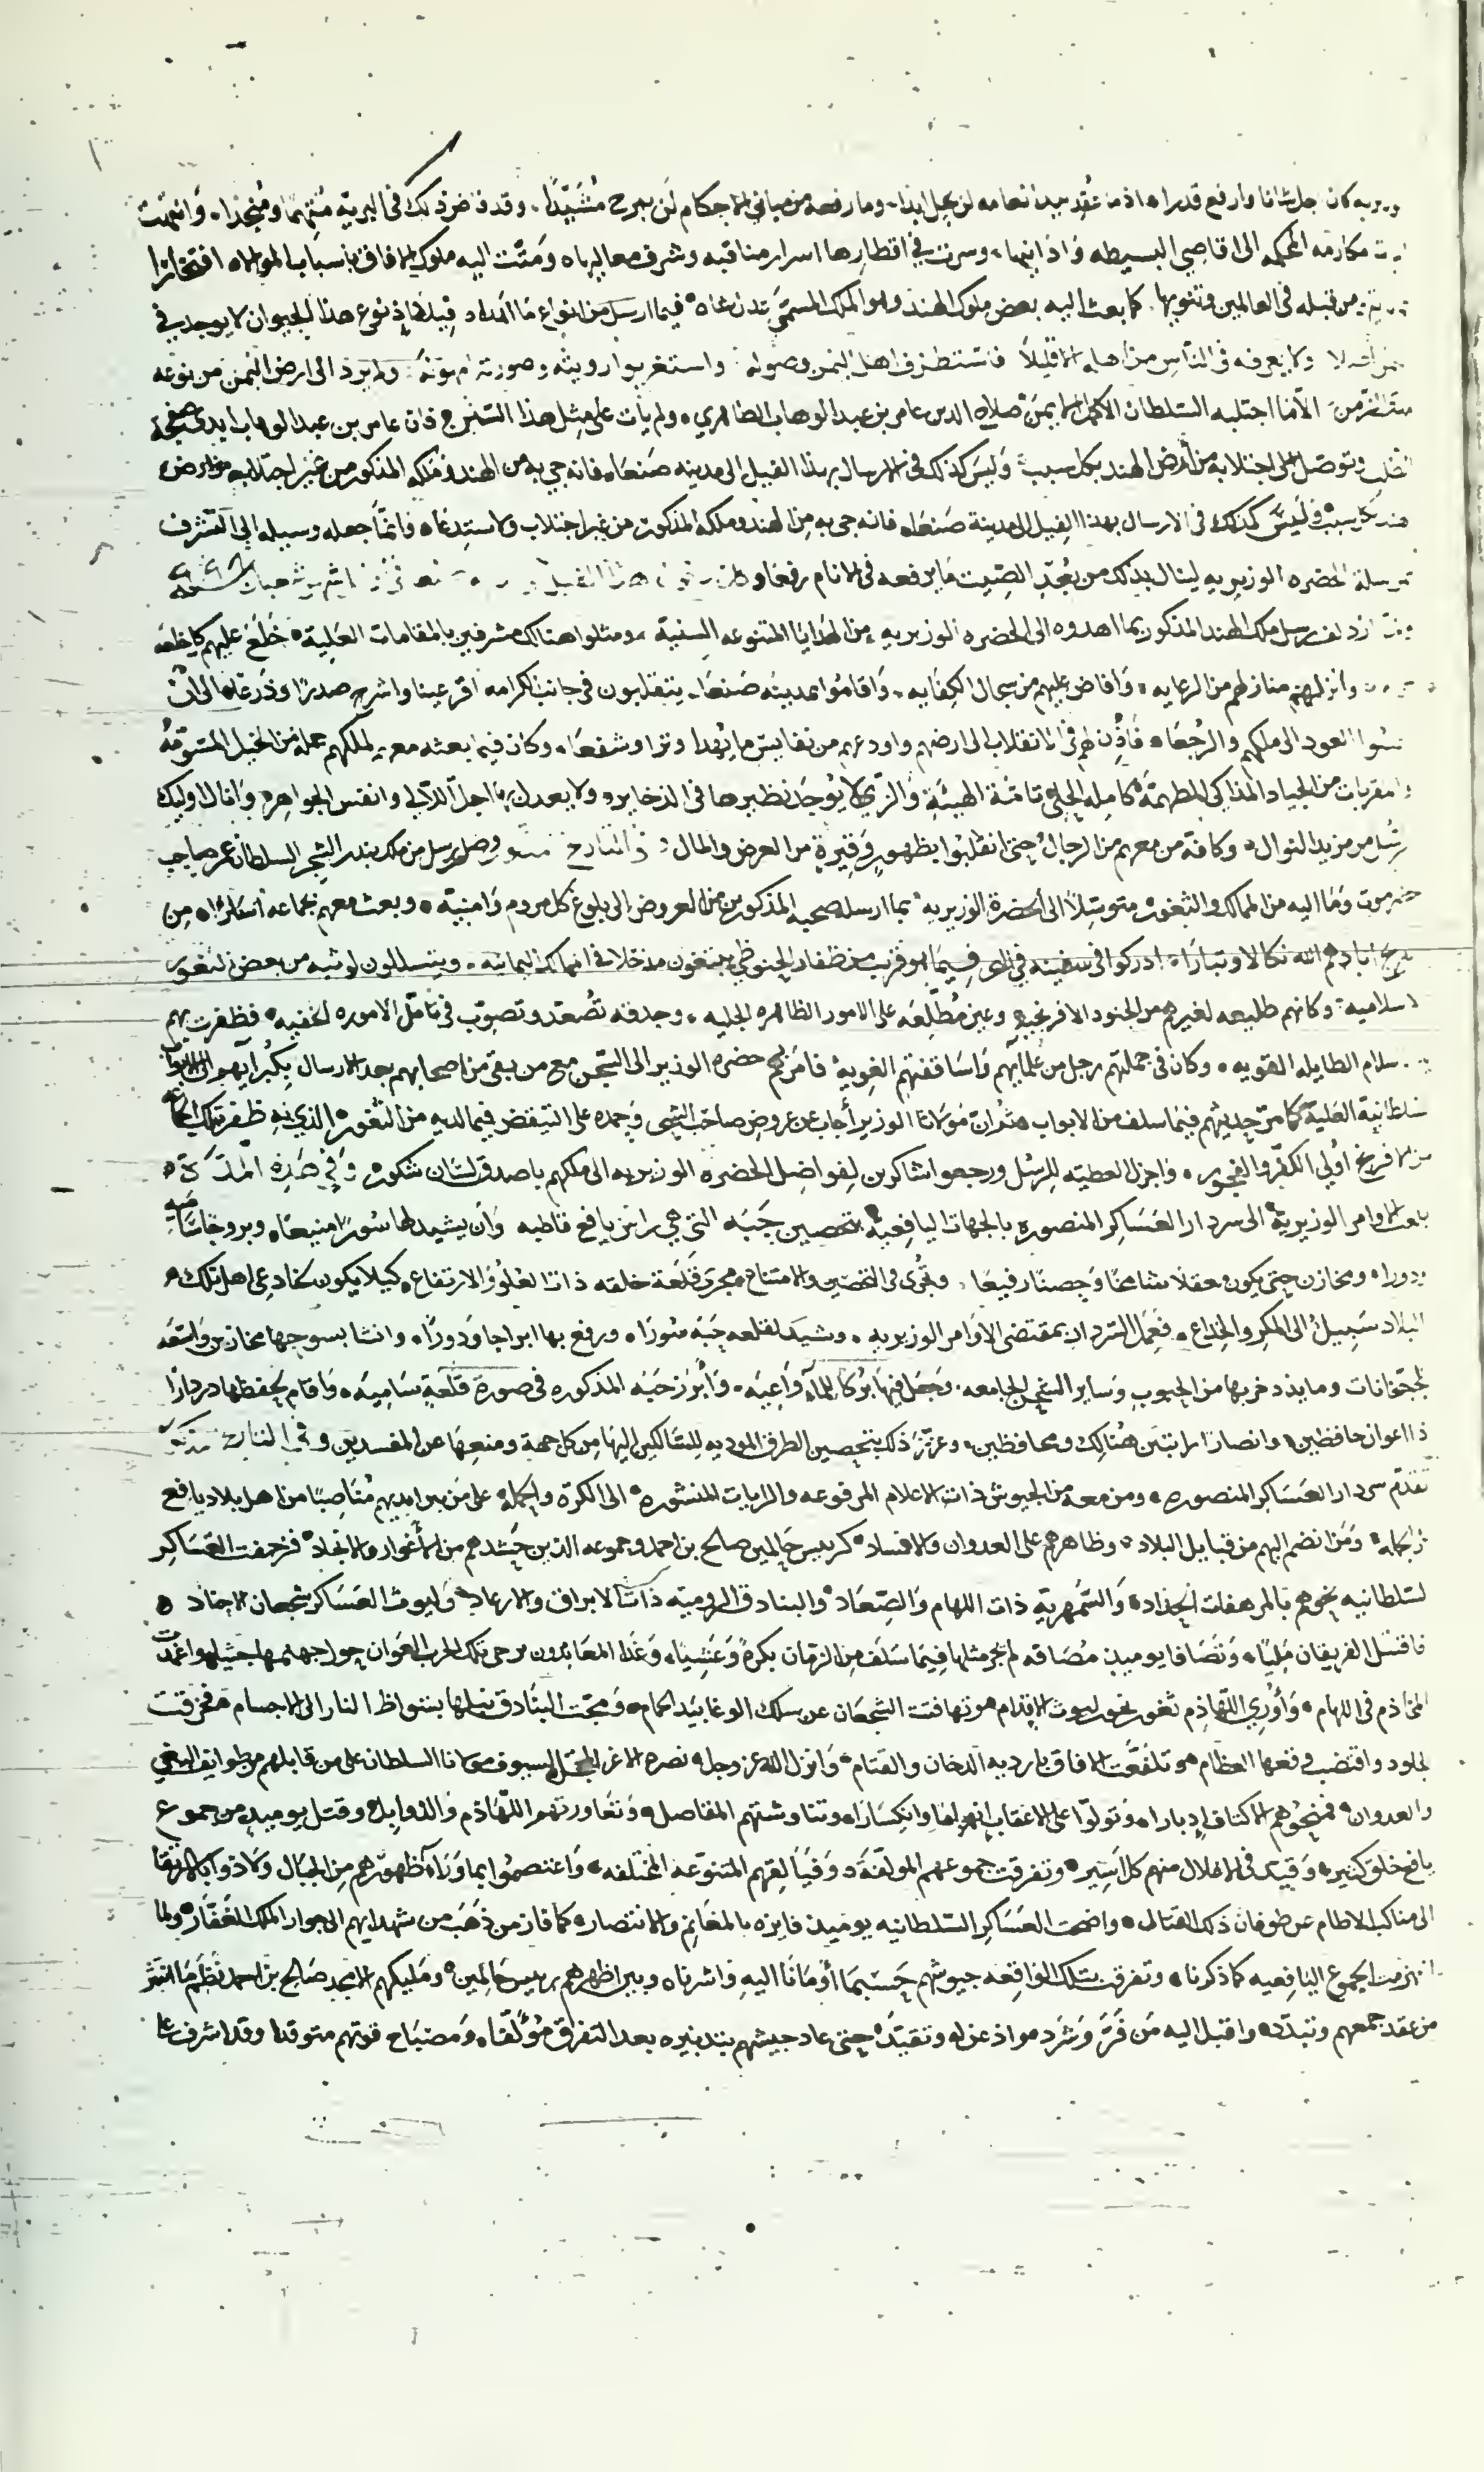 كان اجل شانا وارفع قدرا اذ ما عقد بيد انعامه لن يحل ابدا وما رفعه من مباني الاحكام لن يبرح مشيدا وقد فاض ذلك في البريه متهما ومنجدا وانتهت
مكارمه المحكمه الى اقاصي البسيطه وادانيها وسرت في اقطارها اسرار مناقبه وشرف معاليها ومتت اليه ملوك الافاق باسباب الموالاه افتخارا
من قبله في العالمين وتنويها كما بعث اليه بعض ملوك الهند وهو الملك المسمى فيما ارسل من انواع ما اهداه فيلا اذ نوع هذا الحيوان لا يوجد في
ولا يعرفه في الناس من اهله الا قليلا فاستطرف اهل اليمن وصوله واستغربوا رويته وصورته ولم يرد الى ارض اليمن من نوعه
الا ما اجتلبه السلطان الاكمل صلاح الدين عامر بن عبد الوهاب الظاهري ولم يات على مثل هذا النهج فان عامر بن عبد الوهاب
وتوصل الى اجتلابه من ارض الهند بكل سبب وليس كذلك في الارسال بهذا الفيل الى مدينه صنعاء فانه جي به من الهند وملكه المذكور من غير اجتلاب
وليس كذلك في الارسال بهذا الفيل الى مدينة صنعاء فانه جي به من الهند وملكه المذكور من غير اجتلاب ولا استدعاء وانما جعله وسيله الى التشرف
الحضره الوزيريه لينال بذلك من بعد الصيت ما يرفعه في الانام رفعا
رسل ملك الهند المذكور بما اهدوه الى الحضره الوزيريه من الهدايا المتنوعه السنية ومثلوا هنالك مشرفين بالمقامات العلية خلع عليهم
وانزلهم منازلهم من الرعايه وافاض عليهم من سجال الكفايه واقاموا بمدينه صنعا يتقلبون في جانب الكرامه اقر عينا واشرح صدرا وذرعا الى ان
العود الى ملكهم والرجعا فاذن لهم في الانقلاب الى ارضهم واودعهم من نفايس ما يهدا وترا وشفعا وكان فيما بعثه معهم لملكهم جمله من الخيل المسومه
من الجياد المذاكي المطهمة كامله الحلي تامة الهيئة والزي لا يوجد نظيرها في الذخاير ولا يعدل بها اجل اللآلي وانفس الجواهر وانال اوليك
من مزيد النوال وكافة من معهم من الرجال حتى انقلبوا بظهور وقيرة من العرض والمال وصل رسل من ملك بندر الشحر السلطان عمر صاحب
حضرموت وما اليه من الممالك والثغور متوسلا الى الحضرة الوزيريه بما ارسله صحبة المذكورين من العروض الى بلوغ كل مروم وامنية وبعث معهم بجماعه اسارا من
ابادهم الله نكالا وتبارا ادركوا في سفينه في البحر فيما هو قريب من ظفار الحبوظي يبتغون مدخلا في الممالك اليمانيه ويتسللون لو ثبه من بعض الثغور
الاسلاميه وكانهم طليعه لغيرهم من الجنود الافرنجيه وعين مطلعه على الامور الظاهره الجليه وحدقه تصعد وتصوب في تامل الاموره الخفيه فظفرت بهم
الاسلام الطايله القويه وكان في جملتهم رجل من علمآيهم واساقفتهم الغويه فامر بهم حضره الوزير الى السجن مع من بقي من اصحابهم بعد الارسال بكبرآيهم الى الابواب
السلطانية العلية كما مر حديثهم فيما سلف من الابواب ثم ان مولانا الوزير اجاب عن عروض صاحب الشحر وحمده على التيقض فيما لديه من الثغور
من الافرنج اولي الكفر والفجور واجزل العطيه للرسل ورجعوا شاكرين لفواضل الحضره الوزيريه الى ملكهم باصدق لسان شكور وفي هذه المدة
الاوامر الوزيرية الى سردار العساكر المنصوره بالجهات اليافعيه بتحصين جبه التي هي راس يافع قاطبه وان يشيد لها سورا منيعا وبروجا
ودورا ومخازن حتى يكون معقلا شامخا وحصنا رفيعا وتجرى في التحصين والامتناع مجرى قلعة خلقه ذات العلو والارتفاع كيلا يكون لمخادعي اهل تلك
البلاد سبيل الى المكر والخداع فعمل السردار بمقتضى الاوامر الوزيريه وشيد لقلعه جبه سورا ورفع بها ابراجا ودورا وانشا بسوحها مخازن واسعه
للجبخانات وما يدخر بها من الحبوب وساير الشحن الجامعه وجعل فيها بركا للمآء واعيه وابرز جبه المذكوره في صورة قلعة ساميه واقام بحفظها دزدارا
ذا اعوان حافظين وانصارا راتبين هنالك ومحافظين وعزز ذلك بتحصين الطرق الموديه للسالكين اليها من كل جهة ومنعها عن المفسدين وفي التاريخ
تقدم سردار العساكر المنصوره ومن معه من الجيوش ذات الاعلام المرفوعه والرايات المنشوره الى الكرة والحمله على من بين ايديهم مناصبا من اهل بلاد يافع
ومن انضم اليهم من قبايل البلاد وظاهرهم على العدوان والافساد كرييس حالمين صالح بن احمد وجموعه الذين حشدهم من الاغوار والانجاد فزحفت العساكر
السلطانيه نحوهم بالمرهفات الحداد والسمهرية ذات اللهام والصعاد والبنادق الروميه ذات الابراق والارعاد وليوث العساكر شجعان الاجناد
فاقتتل الفريقان مليا وتصافا يوميذ مصافه لم يجر مثلها فيما سلف من الزمان بكرة وعشيا وغدا المغامرون برحى تلك الحرب العوان حول جهنمها جثيا واغمدت
المخاذم في اللهام واوري اللهاذم ثغور نحور ليوث الاقدام وتهافت الشجعان عن سلك الوغا بيد الحمام ومجت البنادق نبلها بشواظ النار الى الاجسام فخرقت
الجلود واقتضب وقعها العظام وتلفعت الافاق باردية الدخان والقتام وانزل الله عز وجل نصره الاغر لسيوف مولانا السلطان على من قابلهم من طوايف البغي
والعدوان فمنحوهم الاكتاف ادبارا وتولوا على الاعقاب انهزاما وانكسارا وتناوشتهم المفاصل وتعاورتهم اللهاذم والذوابل وقتل يوميذ من جموع
يافع خلق كثير وقيد في الاغلال منهم كل اسير وتفرقت جموعهم المولفة وفيالقهم المتنوعه المختلفه واعتصموا بما وراء ظهورهم من الجبال ولاذوا بالارتقا
الى مناكب الاطام عن طوفان ذلك القتال واضحت العساكر السلطانيه يوميذ فايزه بالمغانم والانتصار كما فاز من ذهب من شهدايهم الى جوار الملك الغفار ولما
انهزمت الجموع اليافعيه كما ذكرنا وتفرقت بتلك الواقعه جيوشهم حسبما اومانا اليه واشرنا وبين اظهرهم رييس حالمين ومليكهم الامجد صالح بن احمد نظم ما انتثر
من عقد جمعهم وتبدد واقبل اليه من فر وشرد مواذ عزله وتقيد حتى عاد جيشهم بتدبيره بعد التفرق مؤتلفا ومصباح قوتهم متوقدا وقد اشرف على